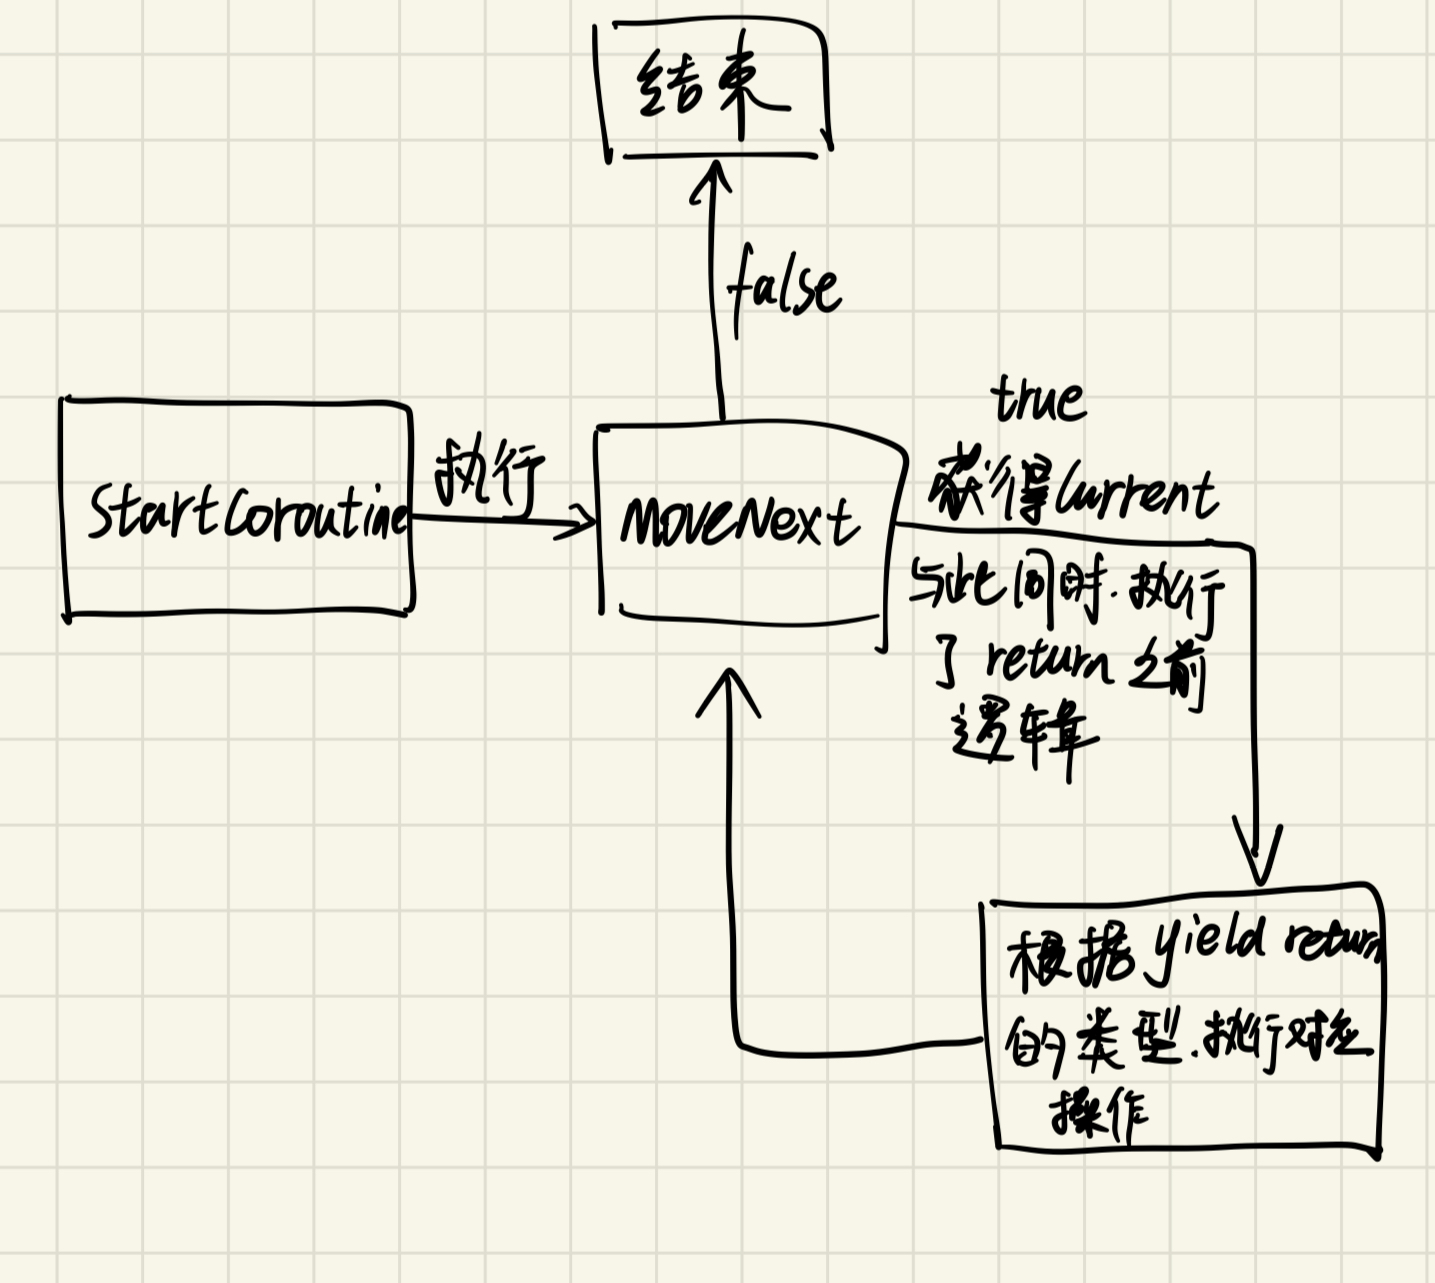 结束
false
true
StartCoroutine
执行
MoveNext
获得Current
与此同时.执行
了return之前
逻辑
根据yield return
的类型.执行对应
操作